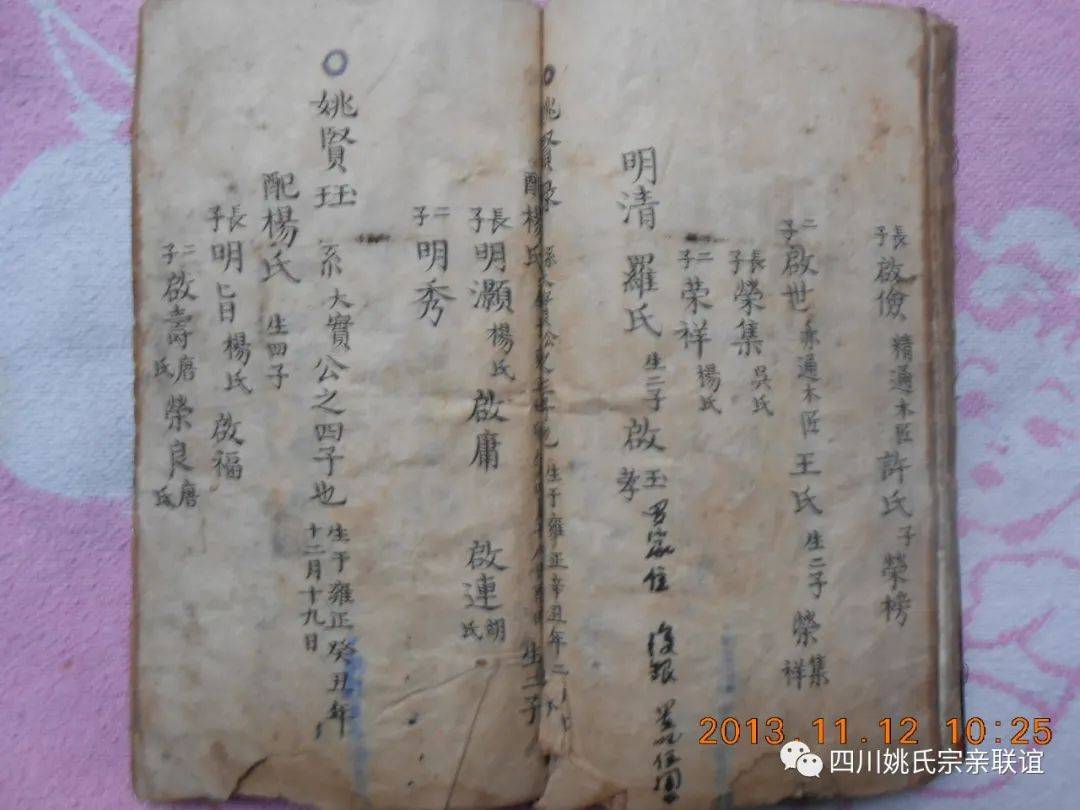 長子 啟儉 精通木匠 許氏 子 榮榜
二子 啟世 亦通木匠 王氏 生二子 榮集 祥
長子 榮集 吳氏
二子 荣祥 楊氏
明清 羅氏 生二子 啟玉 孝 住
姚賢 生于雍正辛丑年二
配楊氏 生二子
長子 明灝 楊氏 啟庸 啟連 氏
二子 明秀
〇 姚賢珏 系大實公之四子也 生于雍正癸丑年十二月十九日
配楊氏 生四子
長子 明旨 楊氏 啟福
二子 啟壽 唐氏 榮良 唐氏
2013.11.12 10:25
四川姚氏宗亲联谊